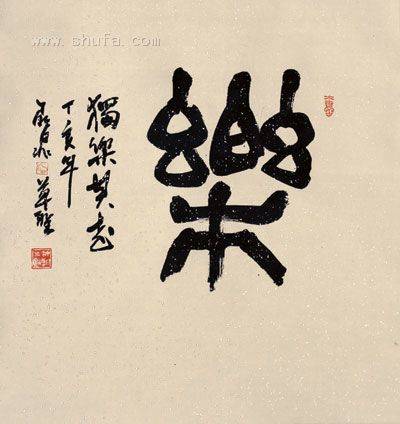 www.shufa.com
樂
獨樂其志
丁亥年
草聖